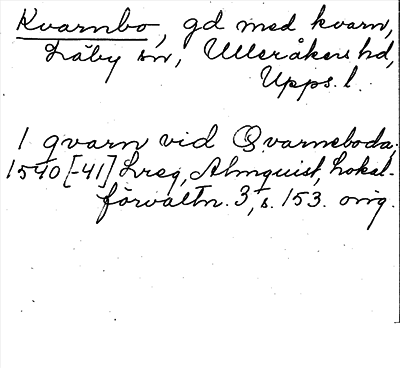 Kvarnbo, gd med kvarn,
Läby sn, Ulleråkers hd,
Upps. l.
1 qvarn vid Qvarneboda,
1540 [-41] Lreg, Almquist, Lokal-
förvaltn. 3, s. 153. orig.